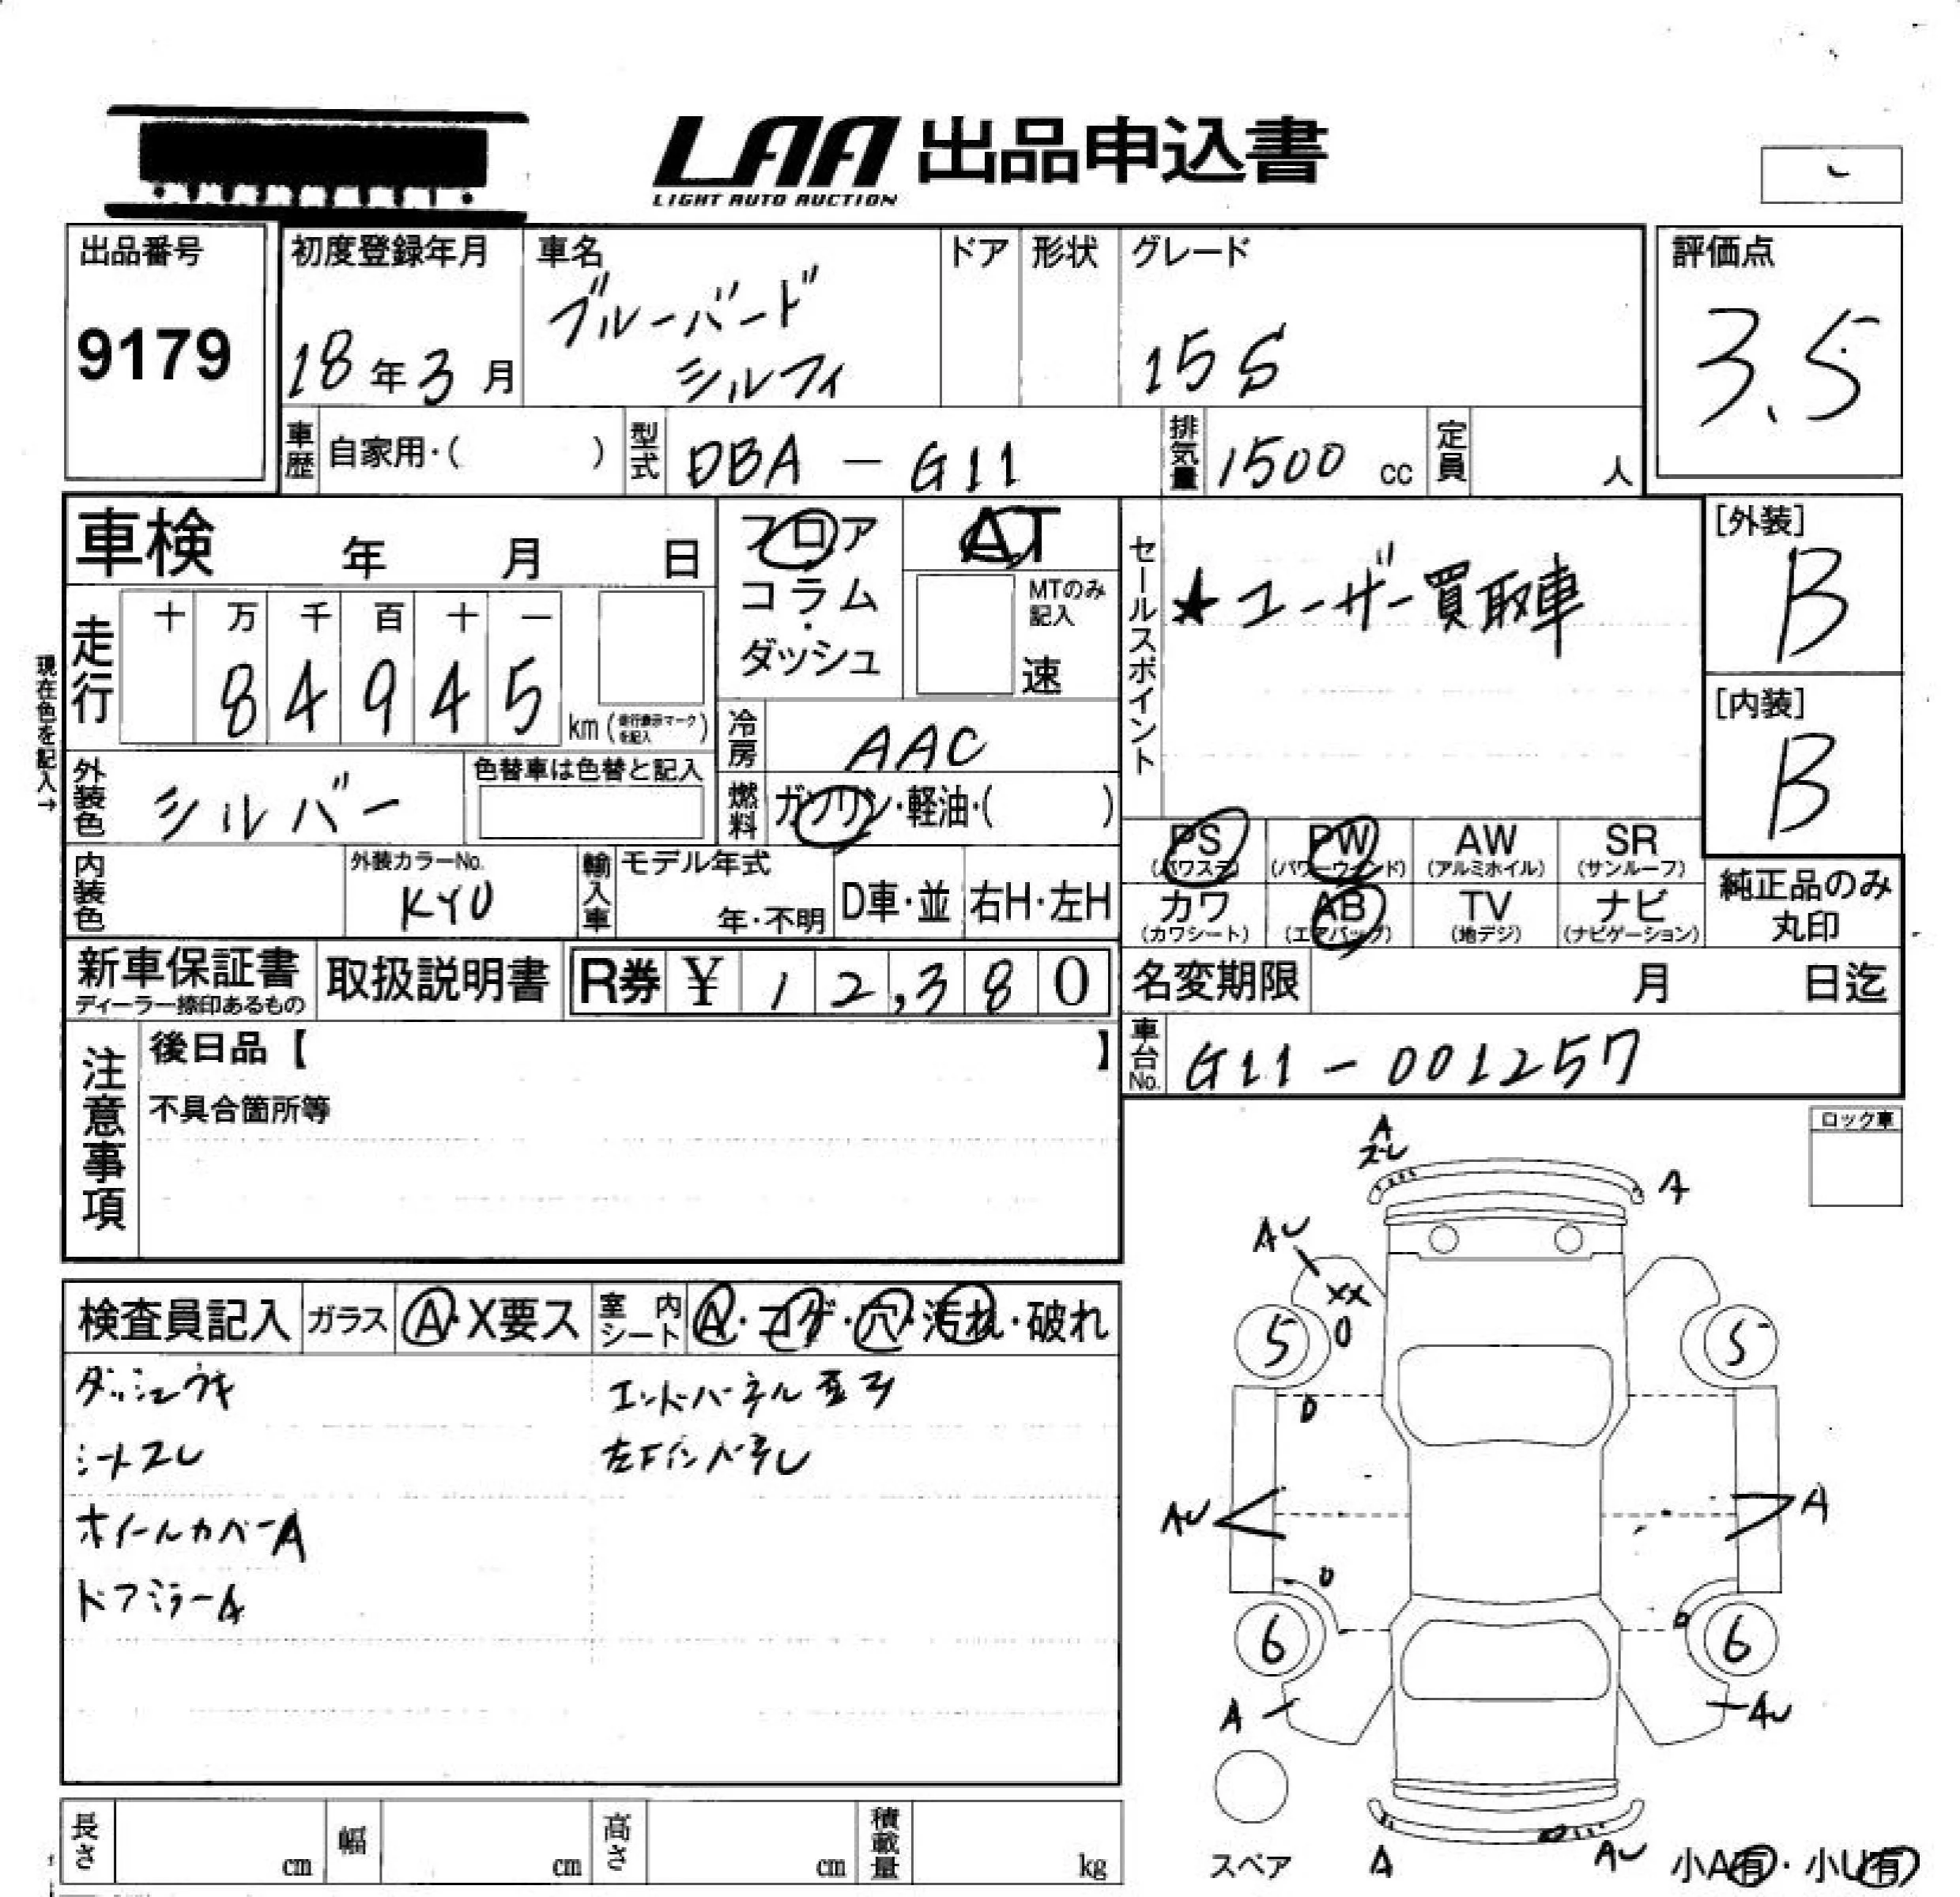 LAA 出品申込書
LIGHT AUTO AUCTION
出品番号
9179
初度登録年月
18年3月
車名
ブルーバード
シルフィ
ドア
形状
グレード
15S
評価点
3.5
車歴 自家用・( )
型式 DBA-G11
排気量 1500 cc
定員 人
車検 年 月 日
フロア
コラム
・
ダッシュ
AT
MTのみ
記入
速
現在色を記入→
走行
十 万 千 百 十 一
8 4 9 4 5
km(走行表示マークを記入)
冷房 AAC
燃料 ガソリン・軽油・( )
外装色 シルバー
色替車は色替と記入
内装色
外装カラーNo.
KY0
輸入車
モデル年式
年・不明
D車・並
右H・左H
セールスポイント
★ユーザー買取車
[外装]
B
[内装]
B
PS
(パワステ)
PW
(パワーウインド)
AW
(アルミホイル)
SR
(サンルーフ)
カワ
(カワシート)
AB
(エアバッグ)
TV
(地デジ)
ナビ
(ナビゲーション)
純正品のみ
丸印
新車保証書
ディーラー捺印あるもの
取扱説明書
R券 ¥ 12,380
名変期限 月 日迄
車台No. G11-001257
注意事項
後日品【 】
不具合箇所等
ロック車
検査員記入
ガラス A・X要ス
室内シート A・コゲ・穴・汚れ・破れ
ダッシュウキ
シートスレ
ホイールカバーA
ドアミラーA
エンドパネル歪ミ
A
スレ
A
AU
XX
5
5
AU
A
6
6
A
AU
スペア
A
AU
小A有・小U有
長さ cm
幅 cm
高さ cm
積載量 kg